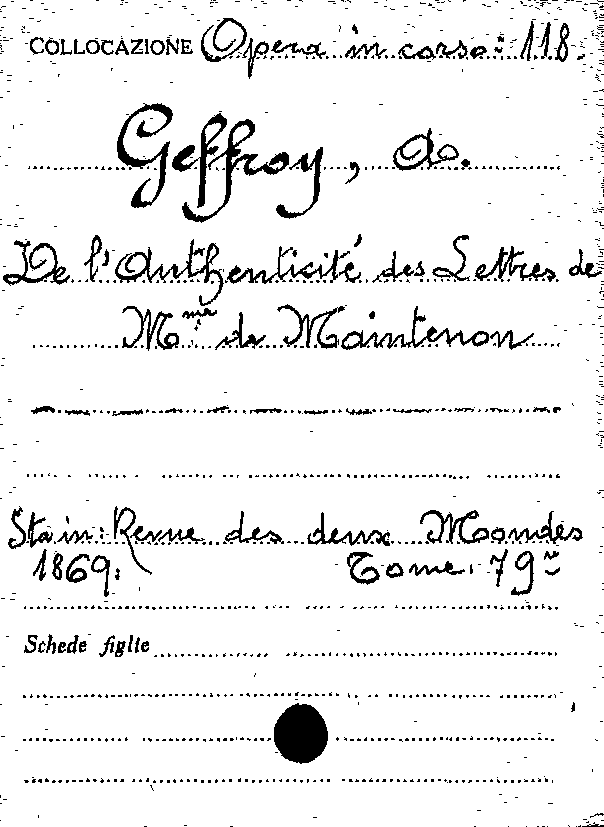 COLLOCAZIONE Opera in corso: 118.
Geffroy, A.
De l'Authenticité des Lettres de
Mme de Maintenon
Sta in: Revue des deux Mondes
1869. Tome. 79º
Schede figlie